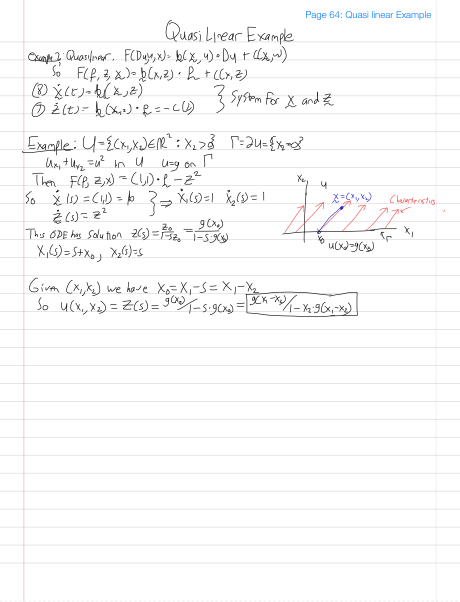 Page 64: Quasi linear Example
Quasi Linear Example
Example 2: Quasilinear. F(Du,u,x) = b(x,u)·Du + c(x,u)
So F(p, z, x) = b(x,z)·p + c(x,z)
(8) ẋ(t) = b(x,z)
(7) ż(t) = b(x,z)·p = -c( ) } System for x and z
Example: U = {(x₁,x₂)∈ℝ² : x₂>0} Γ=∂U={x₂=0}
u_x₁ + u_x₂ = u² in U u=g on Γ
Then F(p, z, x) = (1,1)·p - z²
So ẋ(s) = (1,1) = b } ⇒ ẋ₁(s)=1 ẋ₂(s)=1
ż(s) = z²
This ODE has solution z(s) = z₀/1-sz₀ = g(x₀)/1-s·g(x₀)
x₁(s) = s+x₀, x₂(s)=s
x₂
U
x=(x₁,x₂)
Characteristics
x₁
x₀
Γ
u(x₀)=g(x₀)
Given (x₁,x₂) we have x₀=x₁-s = x₁-x₂
So u(x₁,x₂) = z(s) = g(x₀)/1-s·g(x₀) = g(x₁-x₂)/1-x₂·g(x₁-x₂)